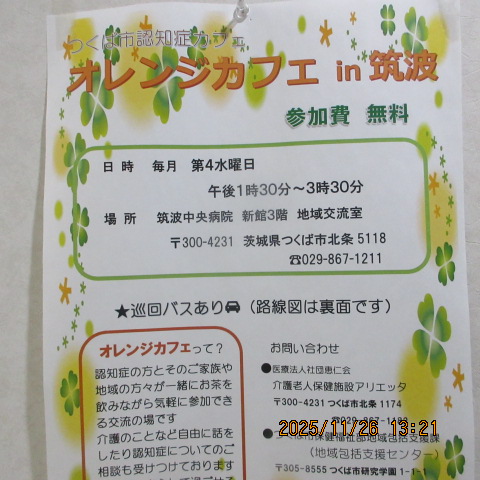 つくば市認知症カフェ
オレンジカフェ in 筑波
参加費 無料
日時 毎月 第4水曜日
午後1時30分~3時30分
場所 筑波中央病院 新館3階 地域交流室
〒300-4231 茨城県つくば市北条 5118
☎029-867-1211
★巡回バスあり🚘（路線図は裏面です）
オレンジカフェって？
認知症の方とそのご家族や
地域の方々が一緒にお茶を
飲みながら気軽に参加でき
る交流の場です
介護のことなど自由に話を
したり認知症についてのご
相談も受けつけております
お問い合わせ
●医療法人社団恵仁会
介護老人保健施設アリエッタ
〒300-4231 つくば市北条 1174
☎029-867-
2025/11/26 13:21
●つくば市保健福祉部地域包括支援課
（地域包括支援センター）
〒305-8555 つくば市研究学園 1-1-1